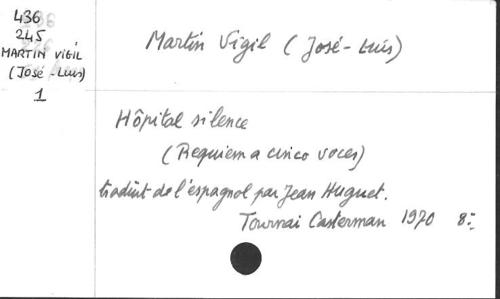 436
245
MARTIN VIGIL
(José-Luis)
1
Martin Vigil (José-Luis)
Hôpital silence
(Requiem a cinco voces)
traduit de l'espagnol par Jean Huguet.
Tournai Casterman 1970 8: